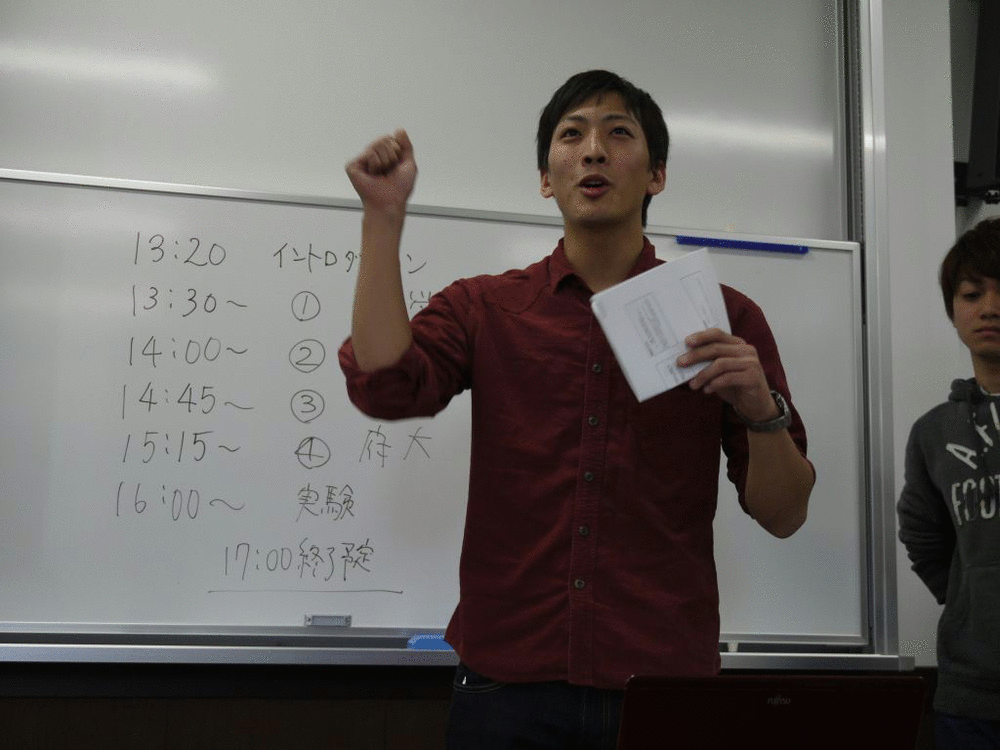 13:20 イントロダ ン
13:30~ ①
14:00~ ②
14:45~ ③
15:15~ ④ 府大
16:00~ 実験
17:00終了予定
FUJITSU
A.F
FOOT